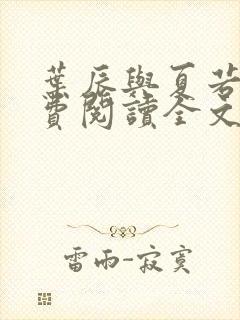 葉辰與夏若
費閱讀全文
雷雨-寂寞